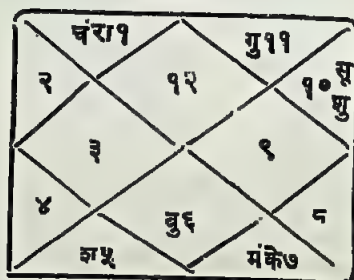 चंरा१ गु११
२ १२ १० सू शु
३ ९
४ बु६ ८
श५ मंके७